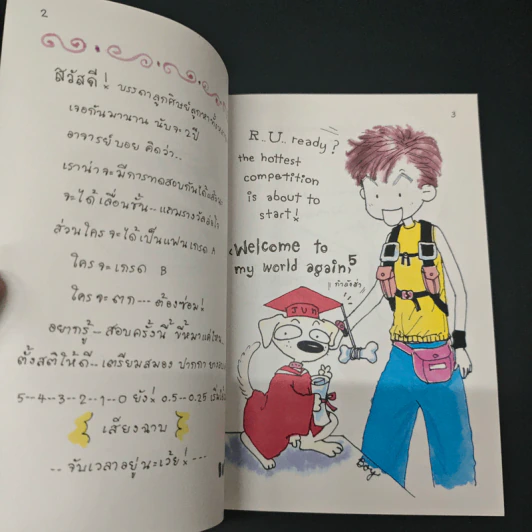 2
สวัสดี! บรรดาลูกศิษย์ลูกหา
เจอกันมานาน นับจะ 2 ปี
อาจารย์บอย คิดว่า..
เราน่าจะมีการทดสอบกัน
จะได้เลื่อนชั้น--แถมรางวัล
ส่วนใครจะได้เป็นแฟนเกรด A
ใครจะเกรด B
ใครจะตก--- ต้องซ่อม!
อยากรู้-- สอบครั้งนี้ ขี้หมาแค่ไหน
ตั้งสติให้ดี-- เตรียมสมอง ปากกา
5--4--3--2--1--0 ยัง! 0.5--0.25
เสียงฉาบ
-- จับเวลาอยู่นะเว้ย! ---
3
R..U.. ready?
the hottest
competition
is about to
start!
Welcome to
my world again 5
JUM
Boy